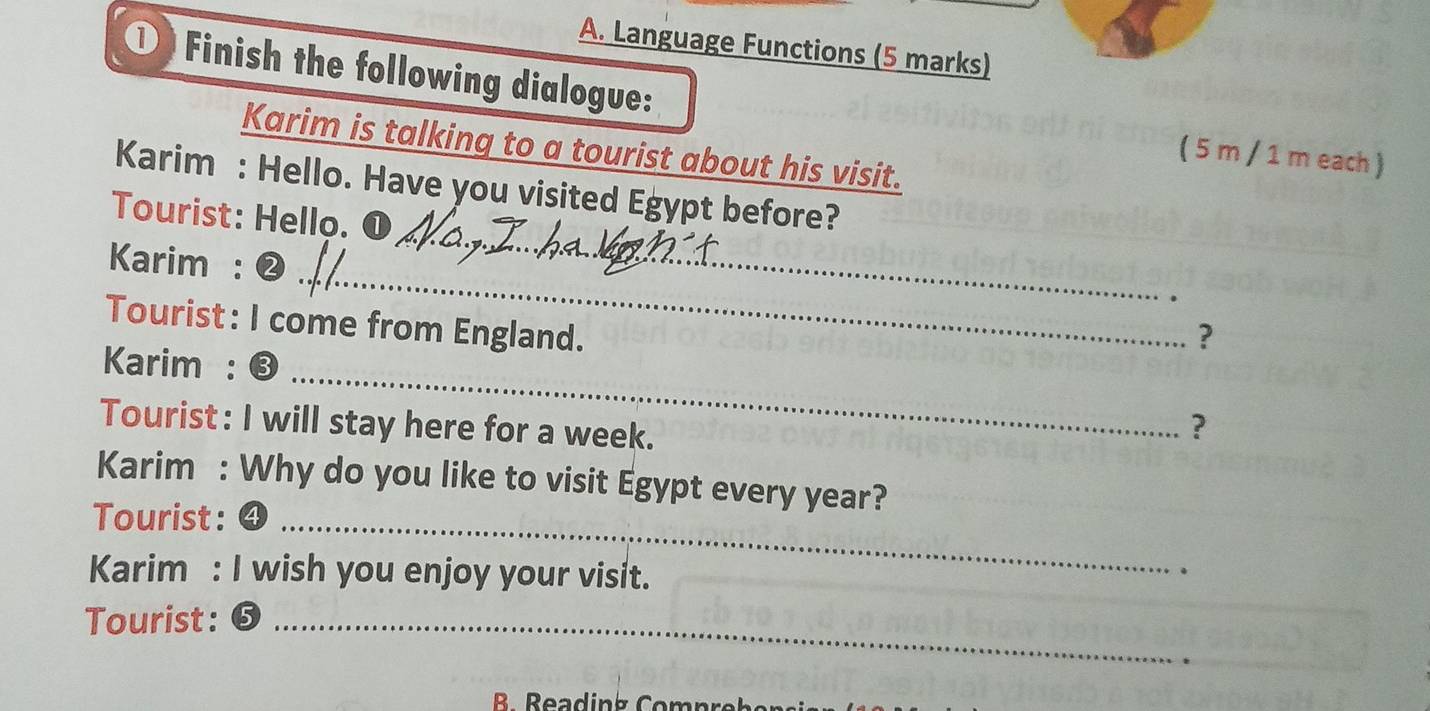 A. Language Functions (5 marks)
1 Finish the following dialogue:
( 5 m / 1 m each )
Karim is talking to a tourist about his visit.
Karim : Hello. Have you visited Egypt before?
Tourist: Hello. ❶ No, I haven't .
Karim : ❷ ?
Tourist: I come from England.
Karim : ❸ ?
Tourist: I will stay here for a week.
Karim : Why do you like to visit Egypt every year?
Tourist: ❹ .
Karim : I wish you enjoy your visit.
Tourist: ❺ .
B. Reading